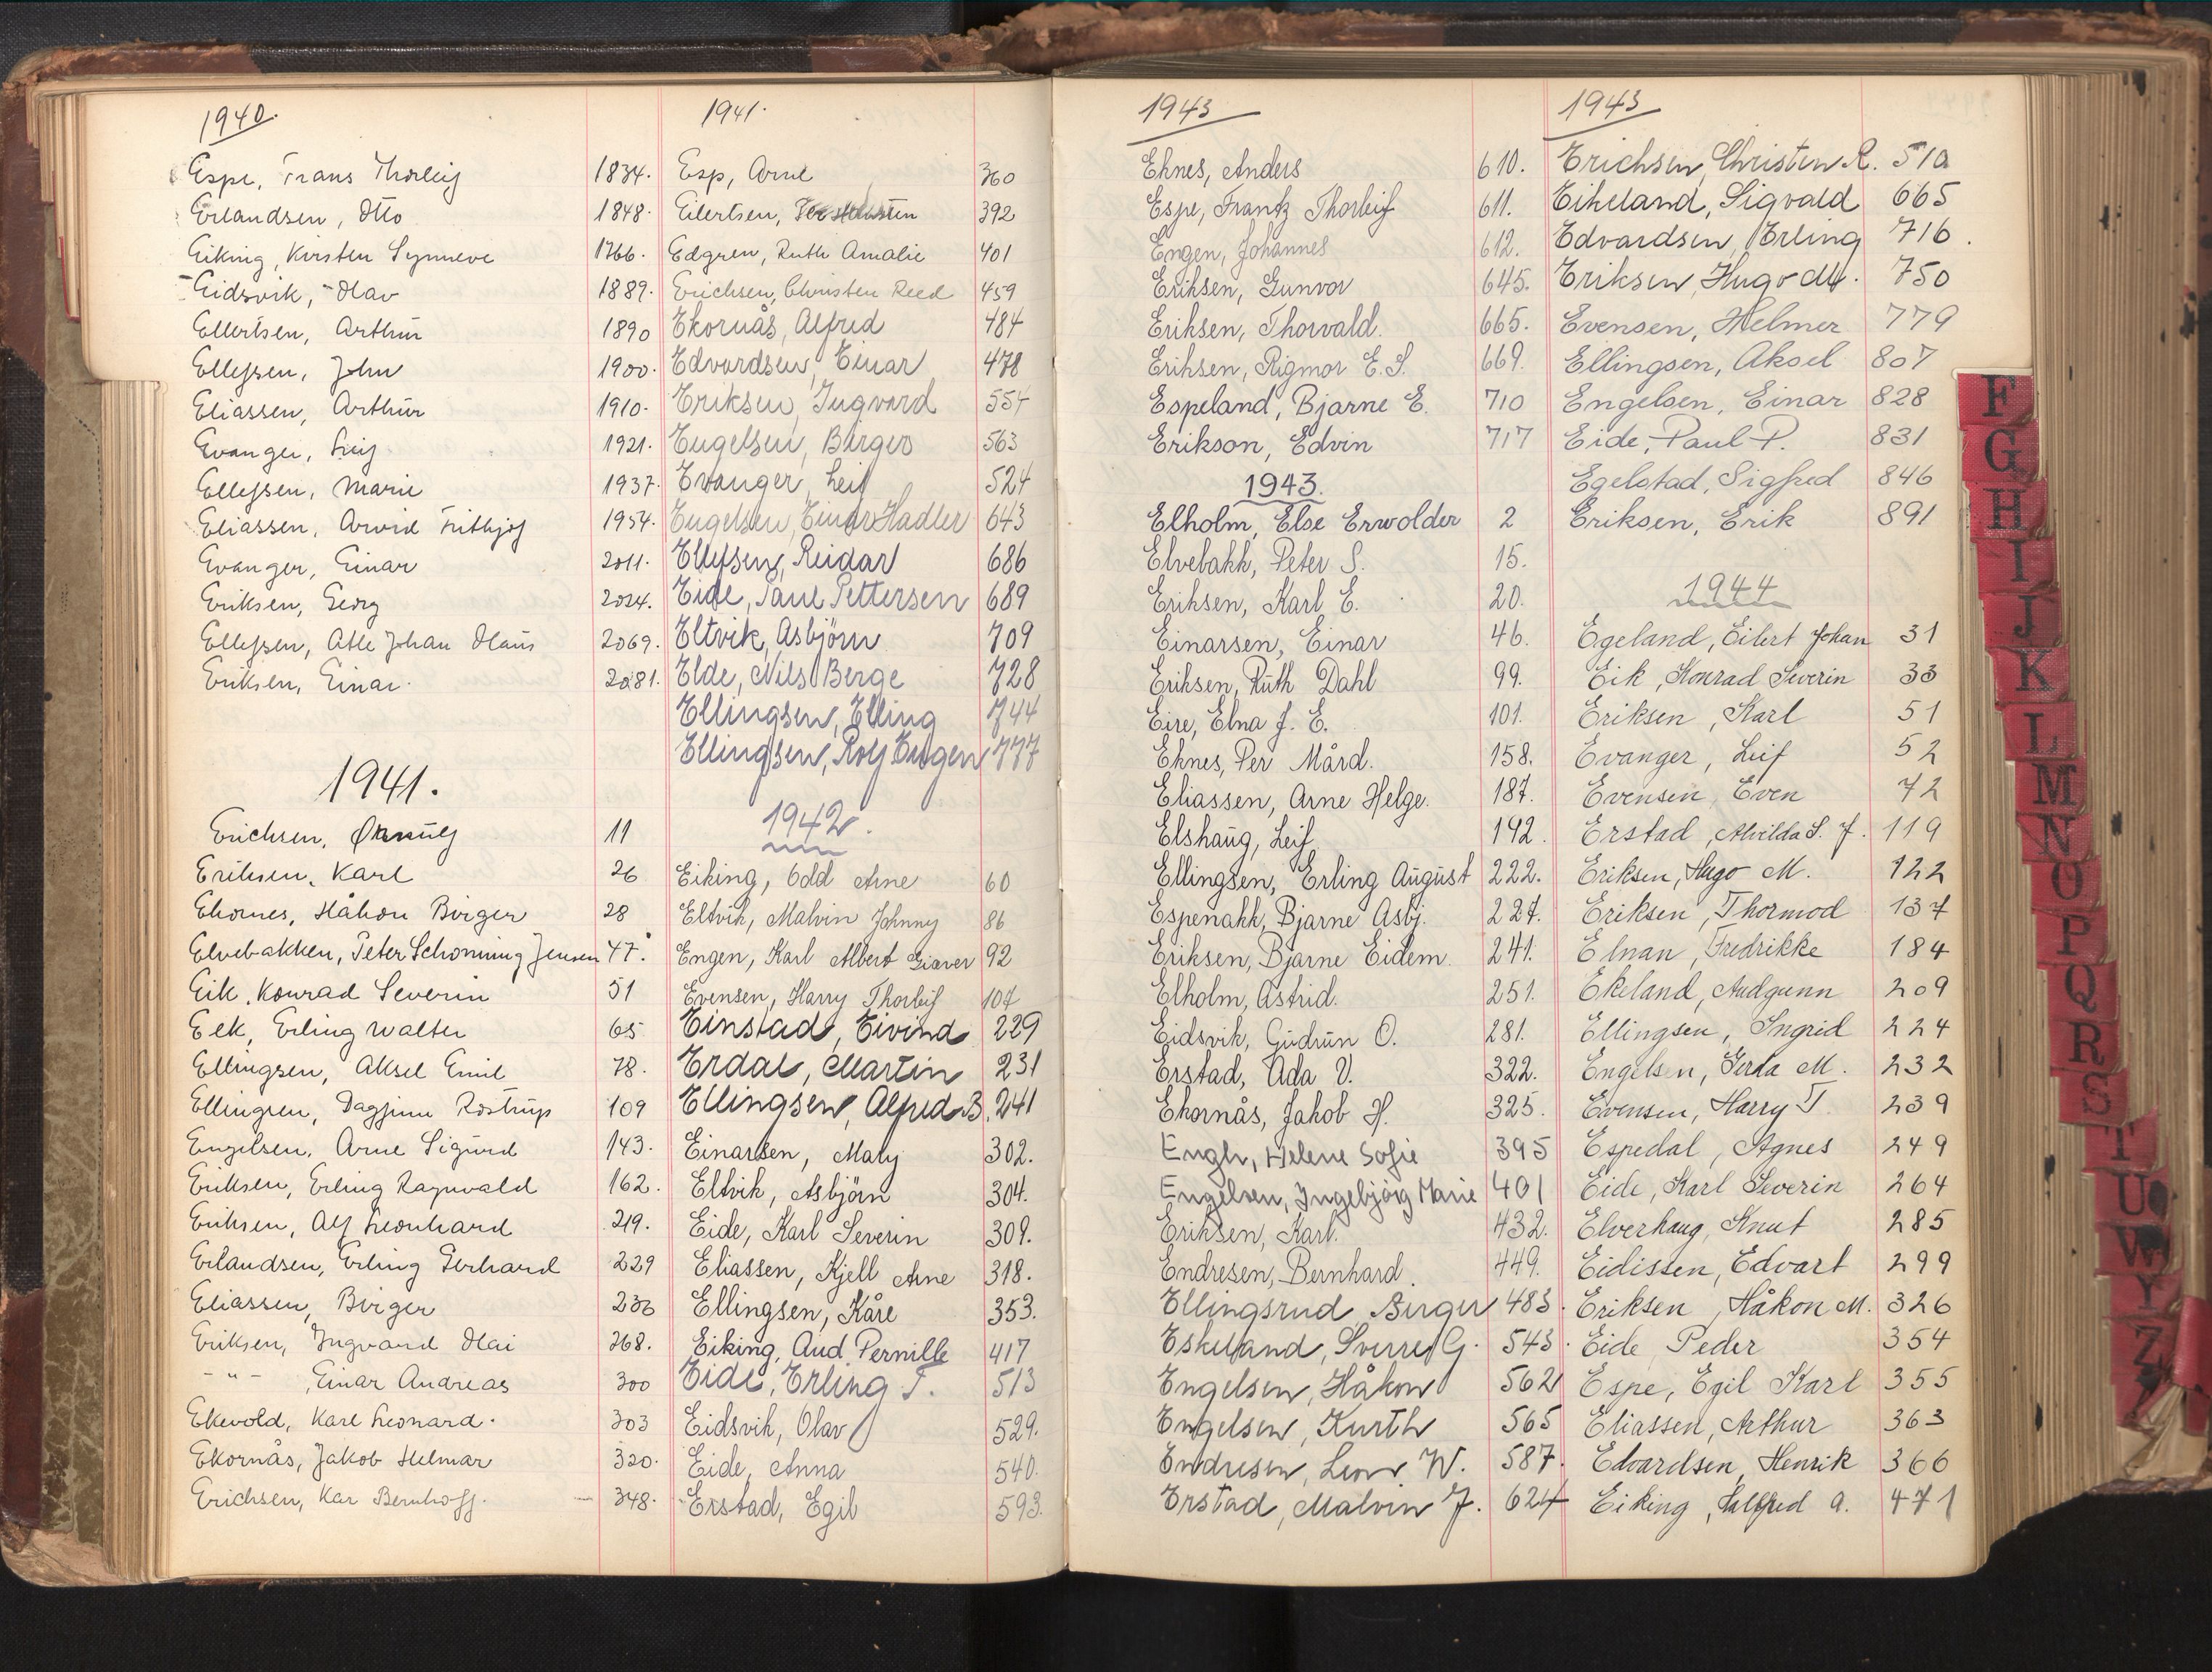 1940.
Espe, Frans Thorleif 1834.
Erlandsen, Otto 1848.
Eiking, Kirsten Synneve 1766.
Eidsvik, Olav 1889.
Ellertsen, Arthur 1890
Ellefsen, John 1900.
Eliassen, Arthur 1910.
Evanger, Leif 1921.
Ellefsen, Marie 1937.
Eliassen, Arvid Fritjof 1954.
Evanger, Einar 2011.
Eriksen, Georg 2024.
Ellefsen, Atle Johan Olaus 2069.
Eriksen, Einar. 2081.
1941.
Erichsen, 11
Eriksen, Karl 26
Ekornes, Håkon Birger 28
Elvebakken, Peter Schønning Jensen 47.
Eik, Konrad Severin 51
Eek, Erling Walter 65
Ellingsen, Aksel Emil 78.
Ellingsen, Dagfinn Rostrup 109
Engelsen, Arne Sigurd 143.
Eriksen, Erling Ragnvald 162.
Eriksen, Alf Leonhard 219.
Erlandsen, Erling Gerhard 229
Eliassen, Birger 230
Eriksen, Ingvard Olai 268.
- " - , Einar Andreas 300
Ekevold, Karl Leonard. 303
Ekornås, Jakob Helmar 320.
Erichsen, Kar Bernhoff. 348.
1941.
Esp, Arne 360
Eilertsen, 392
Edgren, Ruth Amalie 401
Erichsen, Christen Reed 459
Ekornås, Alfred 484
Edvardsen, Einar 478
Eriksen, Ingvard 554
Engelsen, Birger 563
Evanger, Leif 524
Engelsen, Einar Hadler 643
Ellefsen, Reidar 686
Eide, Paul Pettersen 689
Eltvik, Asbjörn 709
Elde, Nils Berge 728
Ellingsen, Elling 744
Ellingsen, Rolf Eugen 777
1942.
Eiking, Odd Arne 60
Eltvik, Malvin Johnny 86
Engen, Karl Albert Giæver 92
Evensen, Harry Thorleif 107
Einstad, Eivind 229
Erdal, Martin 231
Ellingsen, Alfred B. 241
Einarsen, Maly 302.
Eltvik, Asbjörn 304.
Eide, Karl Severin 309.
Eliassen, Kjell Arne 318.
Ellingsen, Kåre 353.
Eiking, Aud Pernille 417
Eide, Erling T. 513
Eidsvik, Olav 529.
Eide, Anna 540.
Erstad, Egil 593.
1943
Eknes, Anders 610.
Espe, Frantz Thorleif 611.
Engen, Johannes 612.
Eriksen, Gunvor 645.
Eriksen, Thorvald. 665.
Eriksen, Rigmor E. S. 669.
Espeland, Bjarne E. 710
Erikson, Edvin 717
1943.
Elholm, Else Erwolder 2
Elvebakk, Peter S. 15.
Eriksen, Karl E. 20.
Einarsen, Einar 46.
Eriksen, Ruth Dahl 99.
Eire, Elna J. E. 101.
Eknes, Per Mård. 158.
Eliassen, Arne Helge. 187.
Elshaug, Leif 192.
Ellingsen, Erling August 222.
Espenakk, Bjarne Asbj. 227.
Eriksen, Bjarne Eidem. 241.
Elholm, Astrid. 251.
Eidsvik, Gudrun O. 281.
Erstad, Ada V. 322.
Ekornås, Jakob H. 325.
Engh, Helene Sofie 395
Engelsen, Ingebjörg Marie 401
Eriksen, Karl. 432.
Endresen, Bernhard. 449.
Ellingsrud, Birger 483.
Eskeland, Sverre G. 543.
Engelsen, Håkon 562
Engelsen, Kurth 565
Endresen, Leon W. 587.
Erstad, Malvin J. 624
1943
Erichsen, Christen R. 510
Eikeland, Sigvald 665
Edvardsen, Erling 716.
Eriksen, Hugo M. 750
Evensen, Helmer 779
Ellingsen, Aksel 807
Engelsen, Einar 828
Eide, Paul P. 831
Egelstad, Sigfred 846
Eriksen, Erik 891
1944
Egeland, Eilert Johan 31
Eik, Konrad Severin 33
Eriksen, Karl 51
Evanger, Leif 52
Evensen, Even 72
Erstad, Alvilda S. J. 119
Eriksen, Hugo M. 122
Eriksen, Thormod 137
Elnan, Fredrikke 184
Ekeland, Audgunn 209
Ellingsen, Ingrid 224
Engelsen, Gerda M. 232
Evensen, Harry T. 239
Espedal, Agnes 249
Eide, Karl Severin 264
Elverhaug, Knut 285
Eidissen, Edvart 299
Eriksen, Håkon M. 326
Eide Peder 354
Espe, Egil Karl 355
Eliassen, Arthur 363
Edvardsen, Henrik 366
Eiking, Salfred A. 471
F
G
H
I
J
K
L
M
N
O
P
Q
R
S
T
U
W
Y
Z